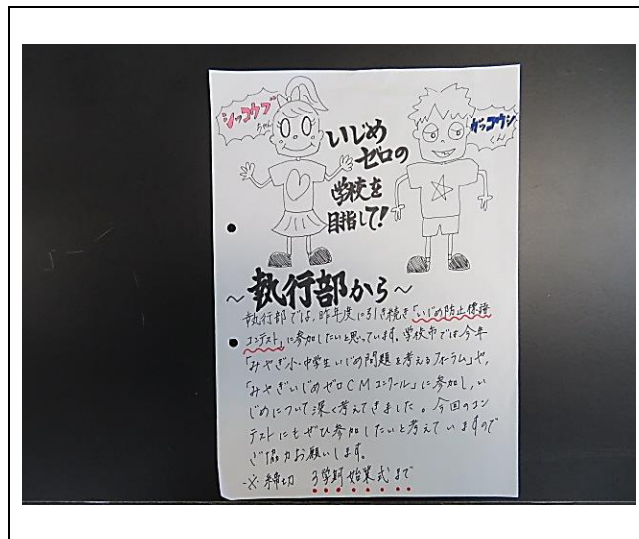 シッコウブ
ちゃん
いじめ
ゼロの
学校を
目指して!
ガッコウシ
くん
～執行部から～
執行部では、昨年度に引き続き「いじめ防止標語
コンテスト」に参加したいと思っています。学校市では今年
「みやぎ小・中学生いじめ問題を考えるフォーラム」や、
「みやぎいじめゼロCMコンクール」に参加し、い
じめについて深く考えてきました。今回のコン
テストにもぜひ参加したいと考えていますので
ご協力お願いします。
※締切 3学期始業式まで